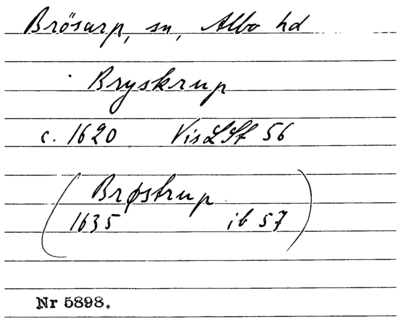 Brösarp, sn, Albo hd
Bryskrup
c. 1620 VisLSt 56
(Brøstrup
1635 ib 57)
Nr 5898.